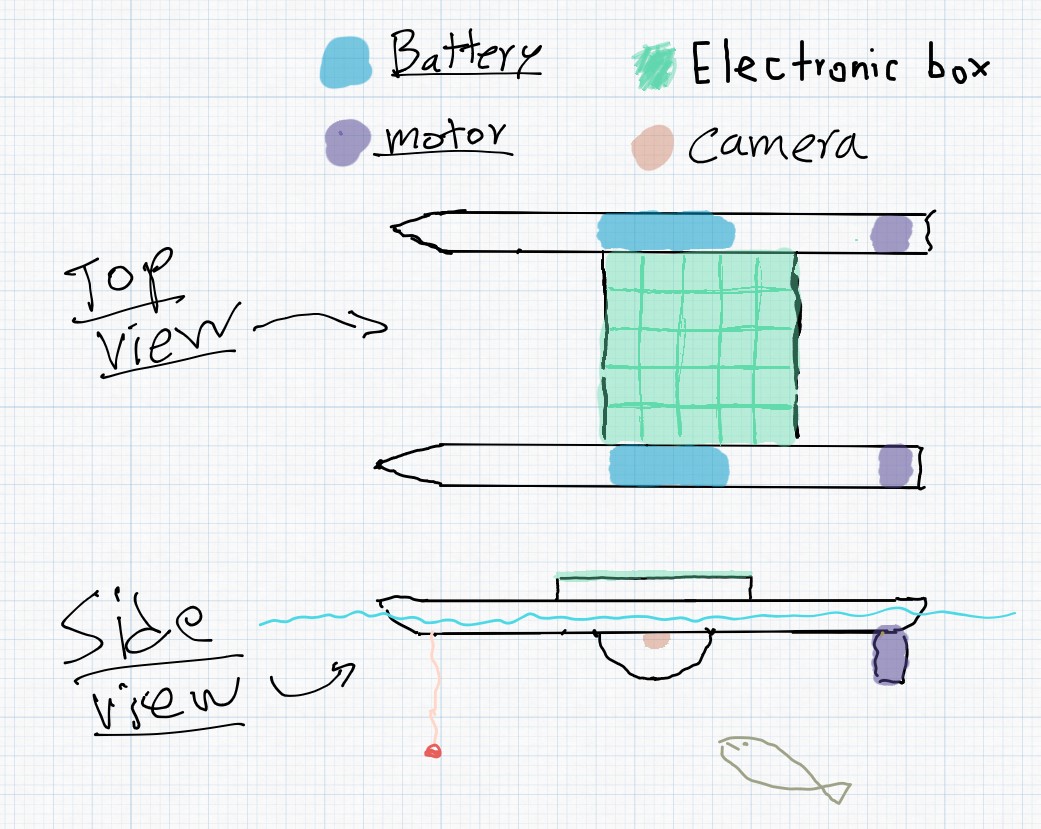 Battery
Electronic box
motor
Camera
Top
View
Side
view